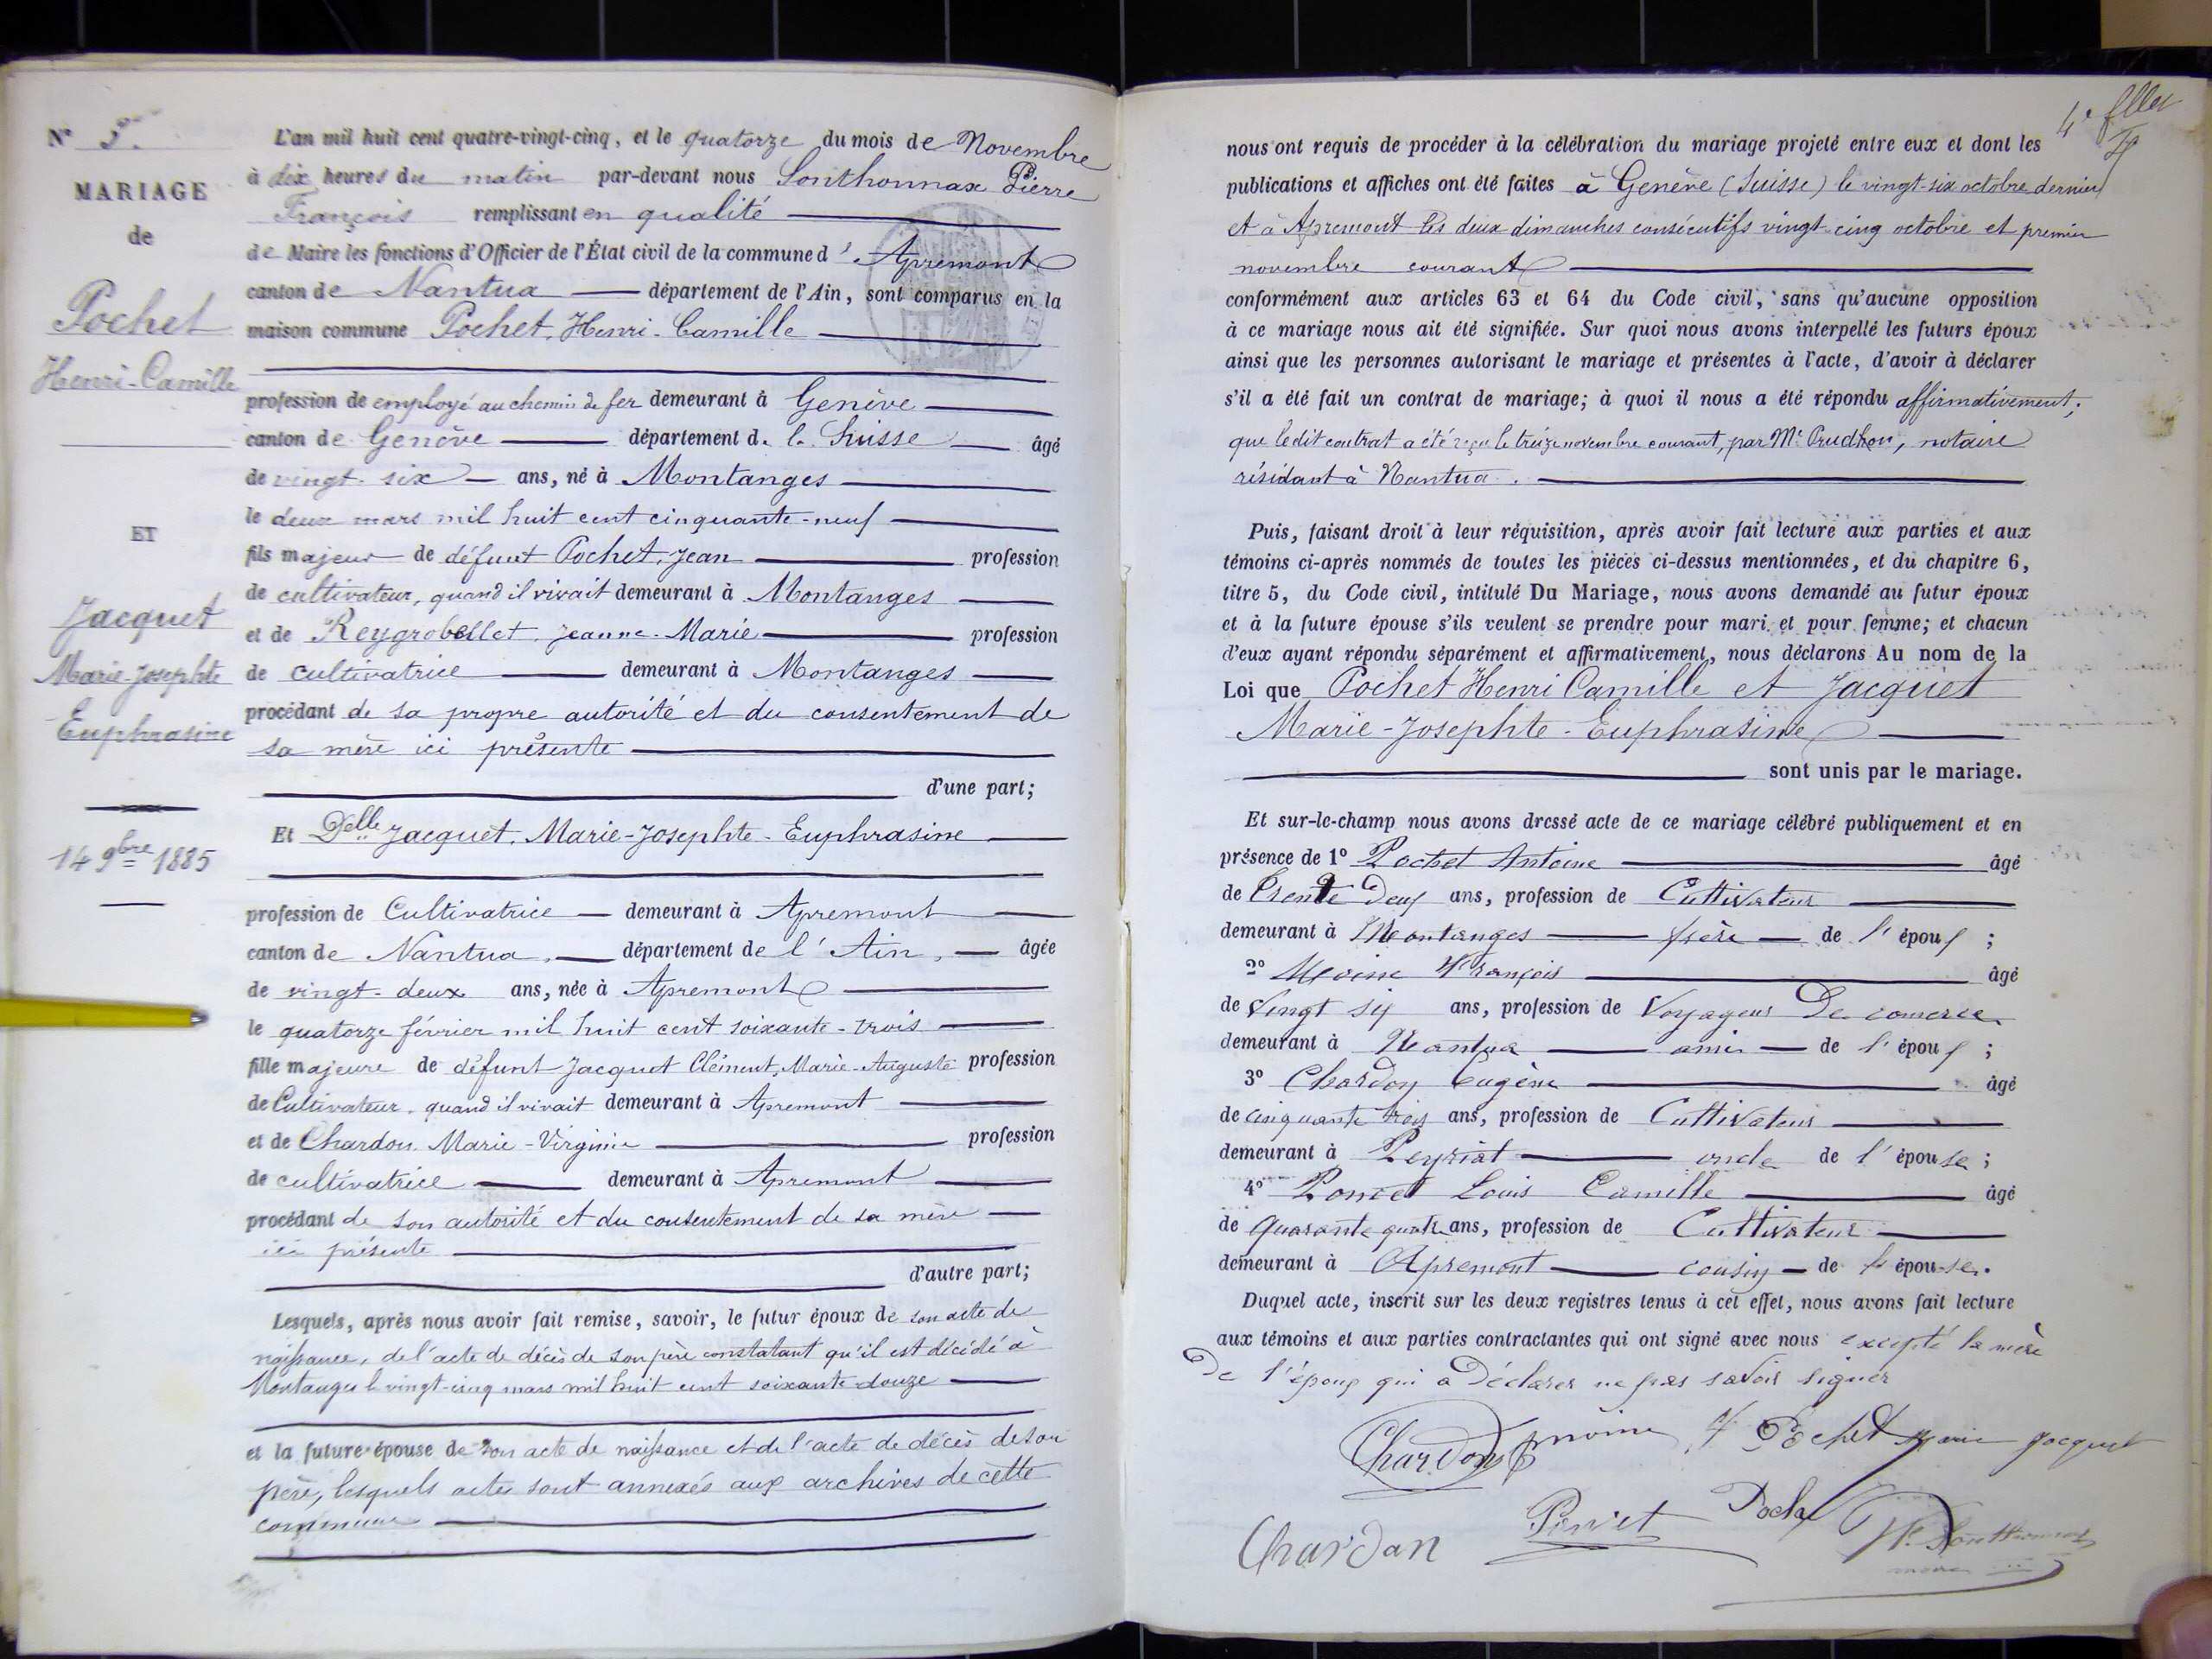 N° 5.
MARIAGE
de
Pochet
Henri-Camille
ET
Jacquet
Marie-Josephte
Euphrasine
14 9bre 1885
L'an mil huit cent quatre-vingt-cinq, et le quatorze du mois de Novembre
à dix heures du matin par-devant nous Sonthonnax Pierre
François remplissant en qualité
de Maire les fonctions d'Officier de l'État civil de la commune d'Apremont
canton de Nantua département de l'Ain, sont comparus en la
maison commune Pochet, Henri-Camille
profession de employé au chemin de fer demeurant à Genève
canton de Genève département de la Suisse âgé
de vingt-six ans, né à Montanges
le deux mars mil huit cent cinquante-neuf
fils majeur de défunt Pochet, Jean profession
de cultivateur, quand il vivait demeurant à Montanges
et de Reygrobellet, Jeanne-Marie profession
de cultivatrice demeurant à Montanges
procédant de sa propre autorité et du consentement de
sa mère ici présente
d'une part;
Et Delle Jacquet, Marie-Josephte-Euphrasine
profession de Cultivatrice demeurant à Apremont
canton de Nantua, département de l'Ain, âgée
de vingt-deux ans, née à Apremont
le quatorze février mil huit cent soixante-trois
fille majeure de défunt Jacquet Clément, Marie-Auguste profession
de Cultivateur, quand il vivait demeurant à Apremont
et de Chardon Marie-Virginie profession
de cultivatrice demeurant à Apremont
procédant de son autorité et du consentement de sa mère
ici présente
d'autre part;
Lesquels, après nous avoir fait remise, savoir, le futur époux de son acte de
naissance, de l'acte de décès de son père constatant qu'il est décédé à
Montanges le vingt-cinq mars mil huit cent soixante-douze
et la future épouse de son acte de naissance et de l'acte de décès de son
père, lesquels actes sont annexés aux archives de cette
commune
4e fllet
nous ont requis de procéder à la célébration du mariage projeté entre eux et dont les
publications et affiches ont été faites à Genève (Suisse) le vingt-six octobre dernier
et à Apremont les deux dimanches consécutifs vingt-cinq octobre et premier
novembre courant
conformément aux articles 63 et 64 du Code civil, sans qu'aucune opposition
à ce mariage nous ait été signifiée. Sur quoi nous avons interpellé les futurs époux
ainsi que les personnes autorisant le mariage et présentes à l'acte, d'avoir à déclarer
s'il a été fait un contrat de mariage; à quoi il nous a été répondu affirmativement;
que ledit contrat a été reçu le treize novembre courant, par Me Prudhon, notaire
résidant à Nantua.
Puis, faisant droit à leur réquisition, après avoir fait lecture aux parties et aux
témoins ci-après nommés de toutes les pièces ci-dessus mentionnées, et du chapitre 6,
titre 5, du Code civil, intitulé Du Mariage, nous avons demandé au futur époux
et à la future épouse s'ils veulent se prendre pour mari et pour femme; et chacun
d'eux ayant répondu séparément et affirmativement, nous déclarons Au nom de la
Loi que Pochet Henri Camille et Jacquet
Marie-Josephte-Euphrasine
sont unis par le mariage.
Et sur-le-champ nous avons dressé acte de ce mariage célébré publiquement et en
présence de 1° Pochet Antoine âgé
de trente deux ans, profession de Cultivateur
demeurant à Montanges frère de l'époux ;
2° Moine François âgé
de vingt six ans, profession de Voyageur De comerce
demeurant à Nantua ami de l'époux ;
3° Chardon Eugène âgé
de cinquante trois ans, profession de Cultivateur
demeurant à Peyriat oncle de l'épouse ;
4° Poncet Louis Camille âgé
de quarante quatre ans, profession de Cultivateur
demeurant à Apremont cousin de l'épouse.
Duquel acte, inscrit sur les deux registres tenus à cet effet, nous avons fait lecture
aux témoins et aux parties contractantes qui ont signé avec nous excepté la mère
De l'époux qui a Déclarer ne pas savoir signer
Chardon F moine H Pochet Marie Jacquet
Chardon Poncet Pochet Sonthonnax
maire